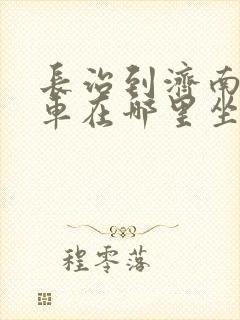 長治到濟南
車在哪里坐
程零落